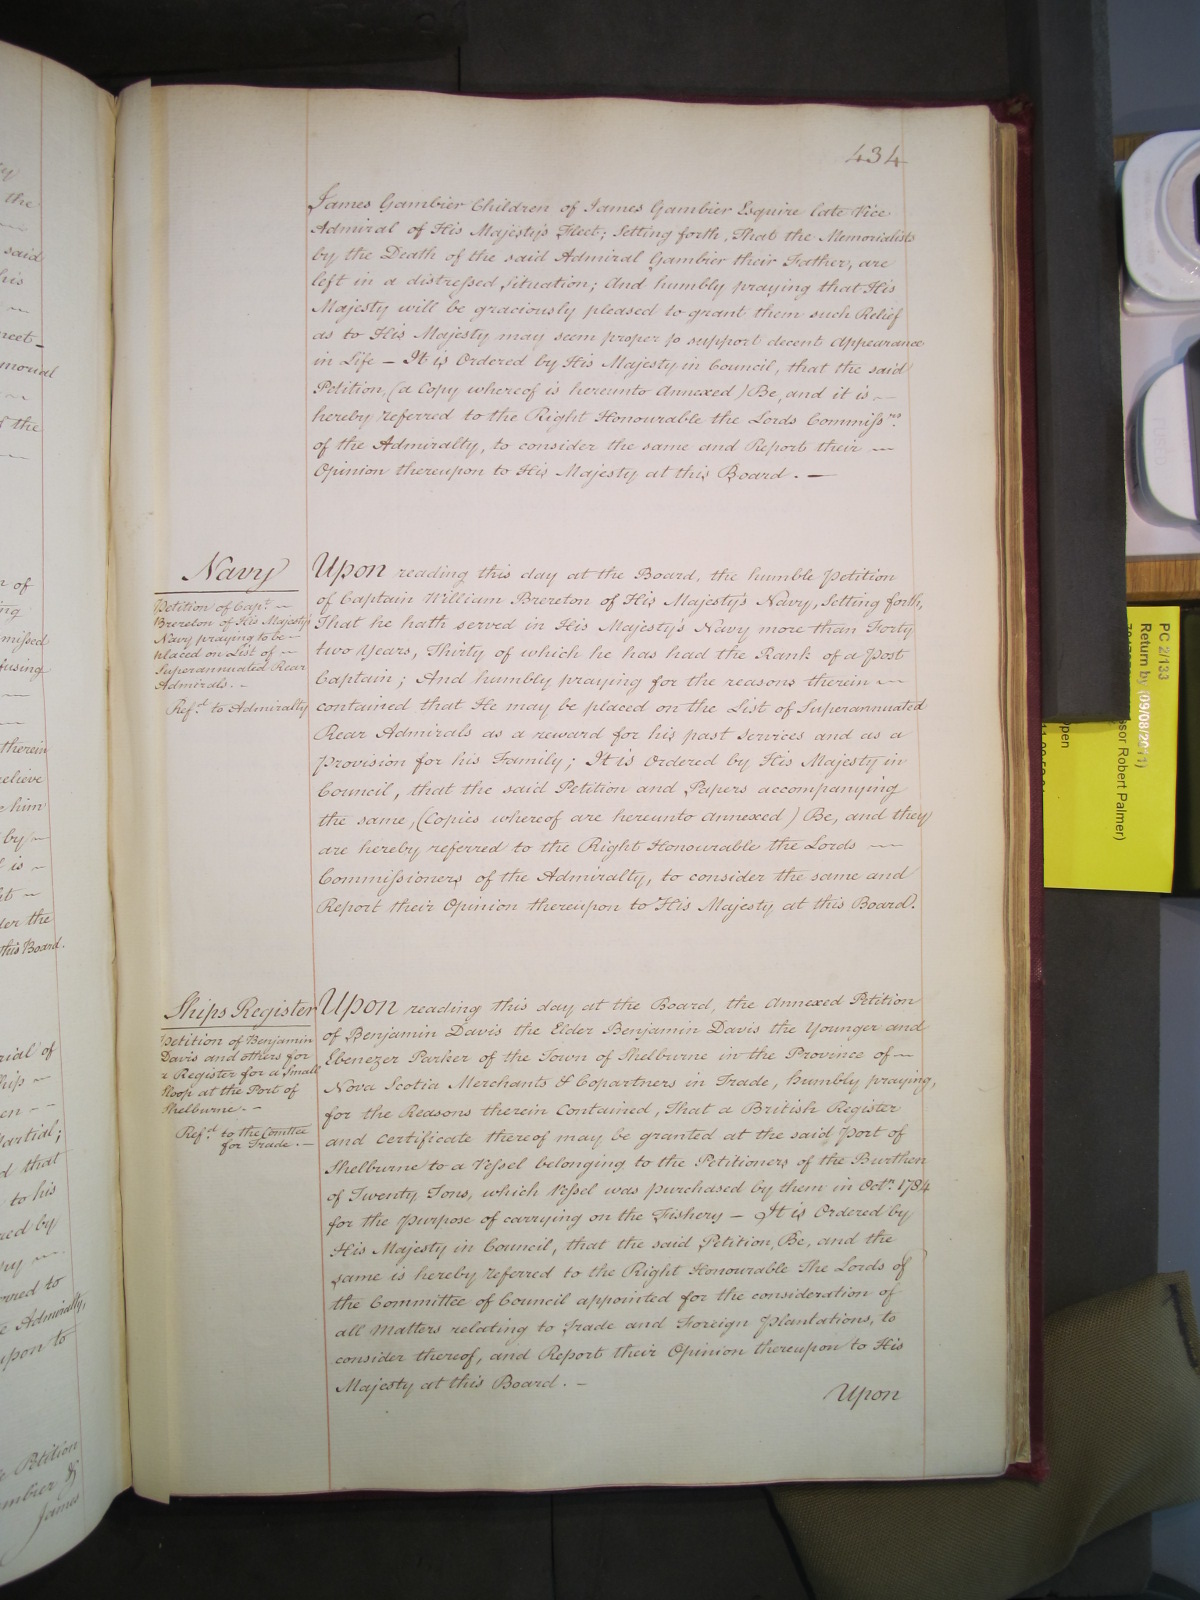 434
James Gambier Children of James Gambier Esquire late Vice
Admiral of His Majesty's Fleet; Setting forth, That the Memorialists
by the Death of the said Admiral Gambier their Father, are
left in a distressed Situation; And humbly praying that His
Majesty will be graciously pleased to grant them such Relief
as to His Majesty may seem proper to support decent Appearance
in Life — It is Ordered by His Majesty in Council, that the said
Petition, (a Copy whereof is hereunto Annexed) Be, and it is —
hereby referred to the Right Honourable the Lords Commissrs.
of the Admiralty, to consider the same and Report their —
Opinion thereupon to His Majesty at this Board. —
Navy
Petition of Capt. —
Brereton of His Majesty's
Navy praying to be —
placed on List of —
Superannuated Rear
Admirals. —
Refd. to Admiralty
Upon reading this day at the Board, the humble Petition
of Captain William Brereton of His Majesty's Navy, Setting forth,
That he hath served in His Majesty's Navy more than Forty
two Years, Thirty of which he has had the Rank of a Post
Captain; And humbly praying for the reasons therein —
contained that He may be placed on the List of Superannuated
Rear Admirals as a reward for his past Services and as a
provision for his Family; It is Ordered by His Majesty in
Council, that the said Petition and Papers accompanying
the same, (Copies whereof are hereunto annexed) Be, and they
are hereby referred to the Right Honourable the Lords —
Commissioners of the Admiralty, to consider the same and
Report their Opinion thereupon to His Majesty at this Board.
Ships Register
Petition of Benjamin
Davis and others for
a Register for a Small
Sloop at the Port of
Shelburne. —
Refd. to the Comttee
for Trade. —
Upon reading this day at the Board, the Annexed Petition
of Benjamin Davis the Elder Benjamin Davis the Younger and
Ebenezer Parker of the Town of Shelburne in the Province of —
Nova Scotia Merchants & Copartners in Trade, humbly praying,
for the Reasons therein Contained, That a British Register
and Certificate thereof may be granted at the said Port of
Shelburne to a Vessel belonging to the Petitioners of the Burthen
of Twenty Tons, which Vessel was purchased by them in Octr. 1784
for the purpose of carrying on the Fishery — It is Ordered by
His Majesty in Council, that the said Petition, Be, and the
same is hereby referred to the Right Honourable The Lords of
the Committee of Council appointed for the consideration of
all Matters relating to Trade and Foreign Plantations, to
consider thereof, and Report their Opinion thereupon to His
Majesty at this Board. —
Upon
the
said
his
the
missed
therein
believe
him
by —
is —
der the
this Board.
Martial;
that
to his
by
to
Admiralty,
upon to
Petition
&
James
PC 2/133
Return by (09/08/2011)
Professor Robert Palmer)